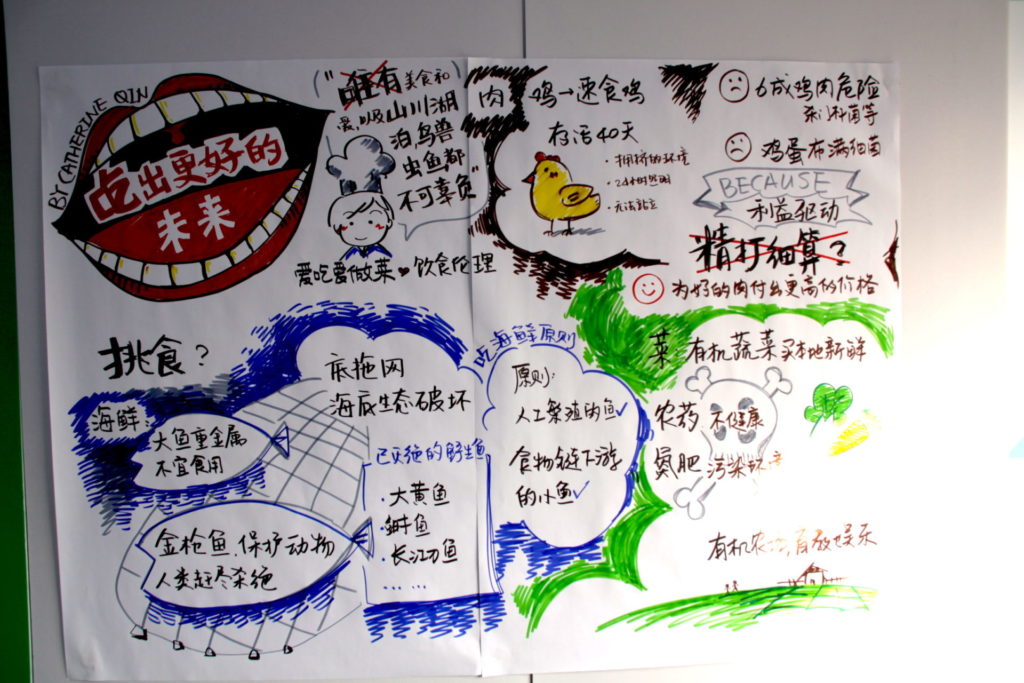 BY CATHERINE QIN
吃出更好的
未来
"唯有美食和
爱,以及山川湖
泊,鸟兽
虫鱼都
不可辜负"
爱吃爱做菜❤饮食伦理
肉
鸡→速食鸡
存活40天
·拥挤的环境
·24小时照明
·无法站立
6成鸡肉危险
杀门杆菌等
鸡蛋布满细菌
BECAUSE
利益驱动
精打细算?
为好的肉付出更高的价格
挑食?
海鲜:
大鱼重金属
不宜食用
金枪鱼,保护动物
人类赶尽杀绝
底拖网
海底生态破坏
已灭绝的野生鱼
·大黄鱼
·鲥鱼
·长江刀鱼
……
吃海鲜原则
原则:
人工繁殖的鱼✓
食物链下游
的小鱼✓
菜 有机蔬菜 买本地新鲜
农药 不健康
氮肥 污染环境
有机农场,有教娱乐